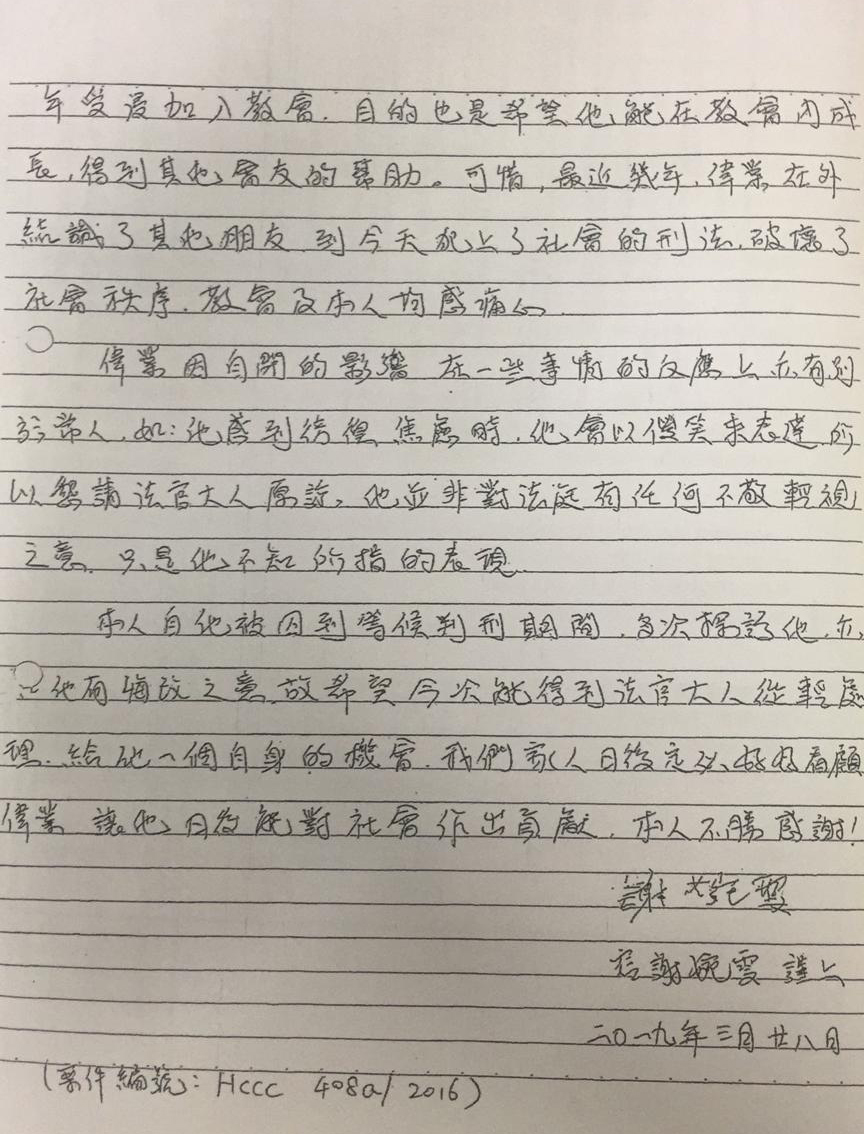 年受浸加入教會．目的也是希望他能在教會內成
長，得到其他會友的幫助。可惜，最近幾年，偉業在外
結識了其他朋友 到今天犯上了社會的刑法．破壞了
社會秩序．教會及本人均感痛心
偉業因自閉的影響 在一些事情的反應上亦有別
於常人．如：他感到徬徨 焦慮時，他會以傻笑來表達 所
以懇請法官大人原諒。他並非對法庭有任何不敬 輕視
之意．只是他不知所措的表現
本人自他被囚到等候判刑期間，多次探訪他．亦
他有悔改之意．故希望今次能得到法官大人從輕處
理．給他一個自身的機會．我們家人日後定必好好看顧
偉業 讓他日後能對社會作出貢獻．本人不勝感謝！
謝婉雯 謹上
二０一九年三月廿八日
（案件編號：HCCC 408a/ 2016）